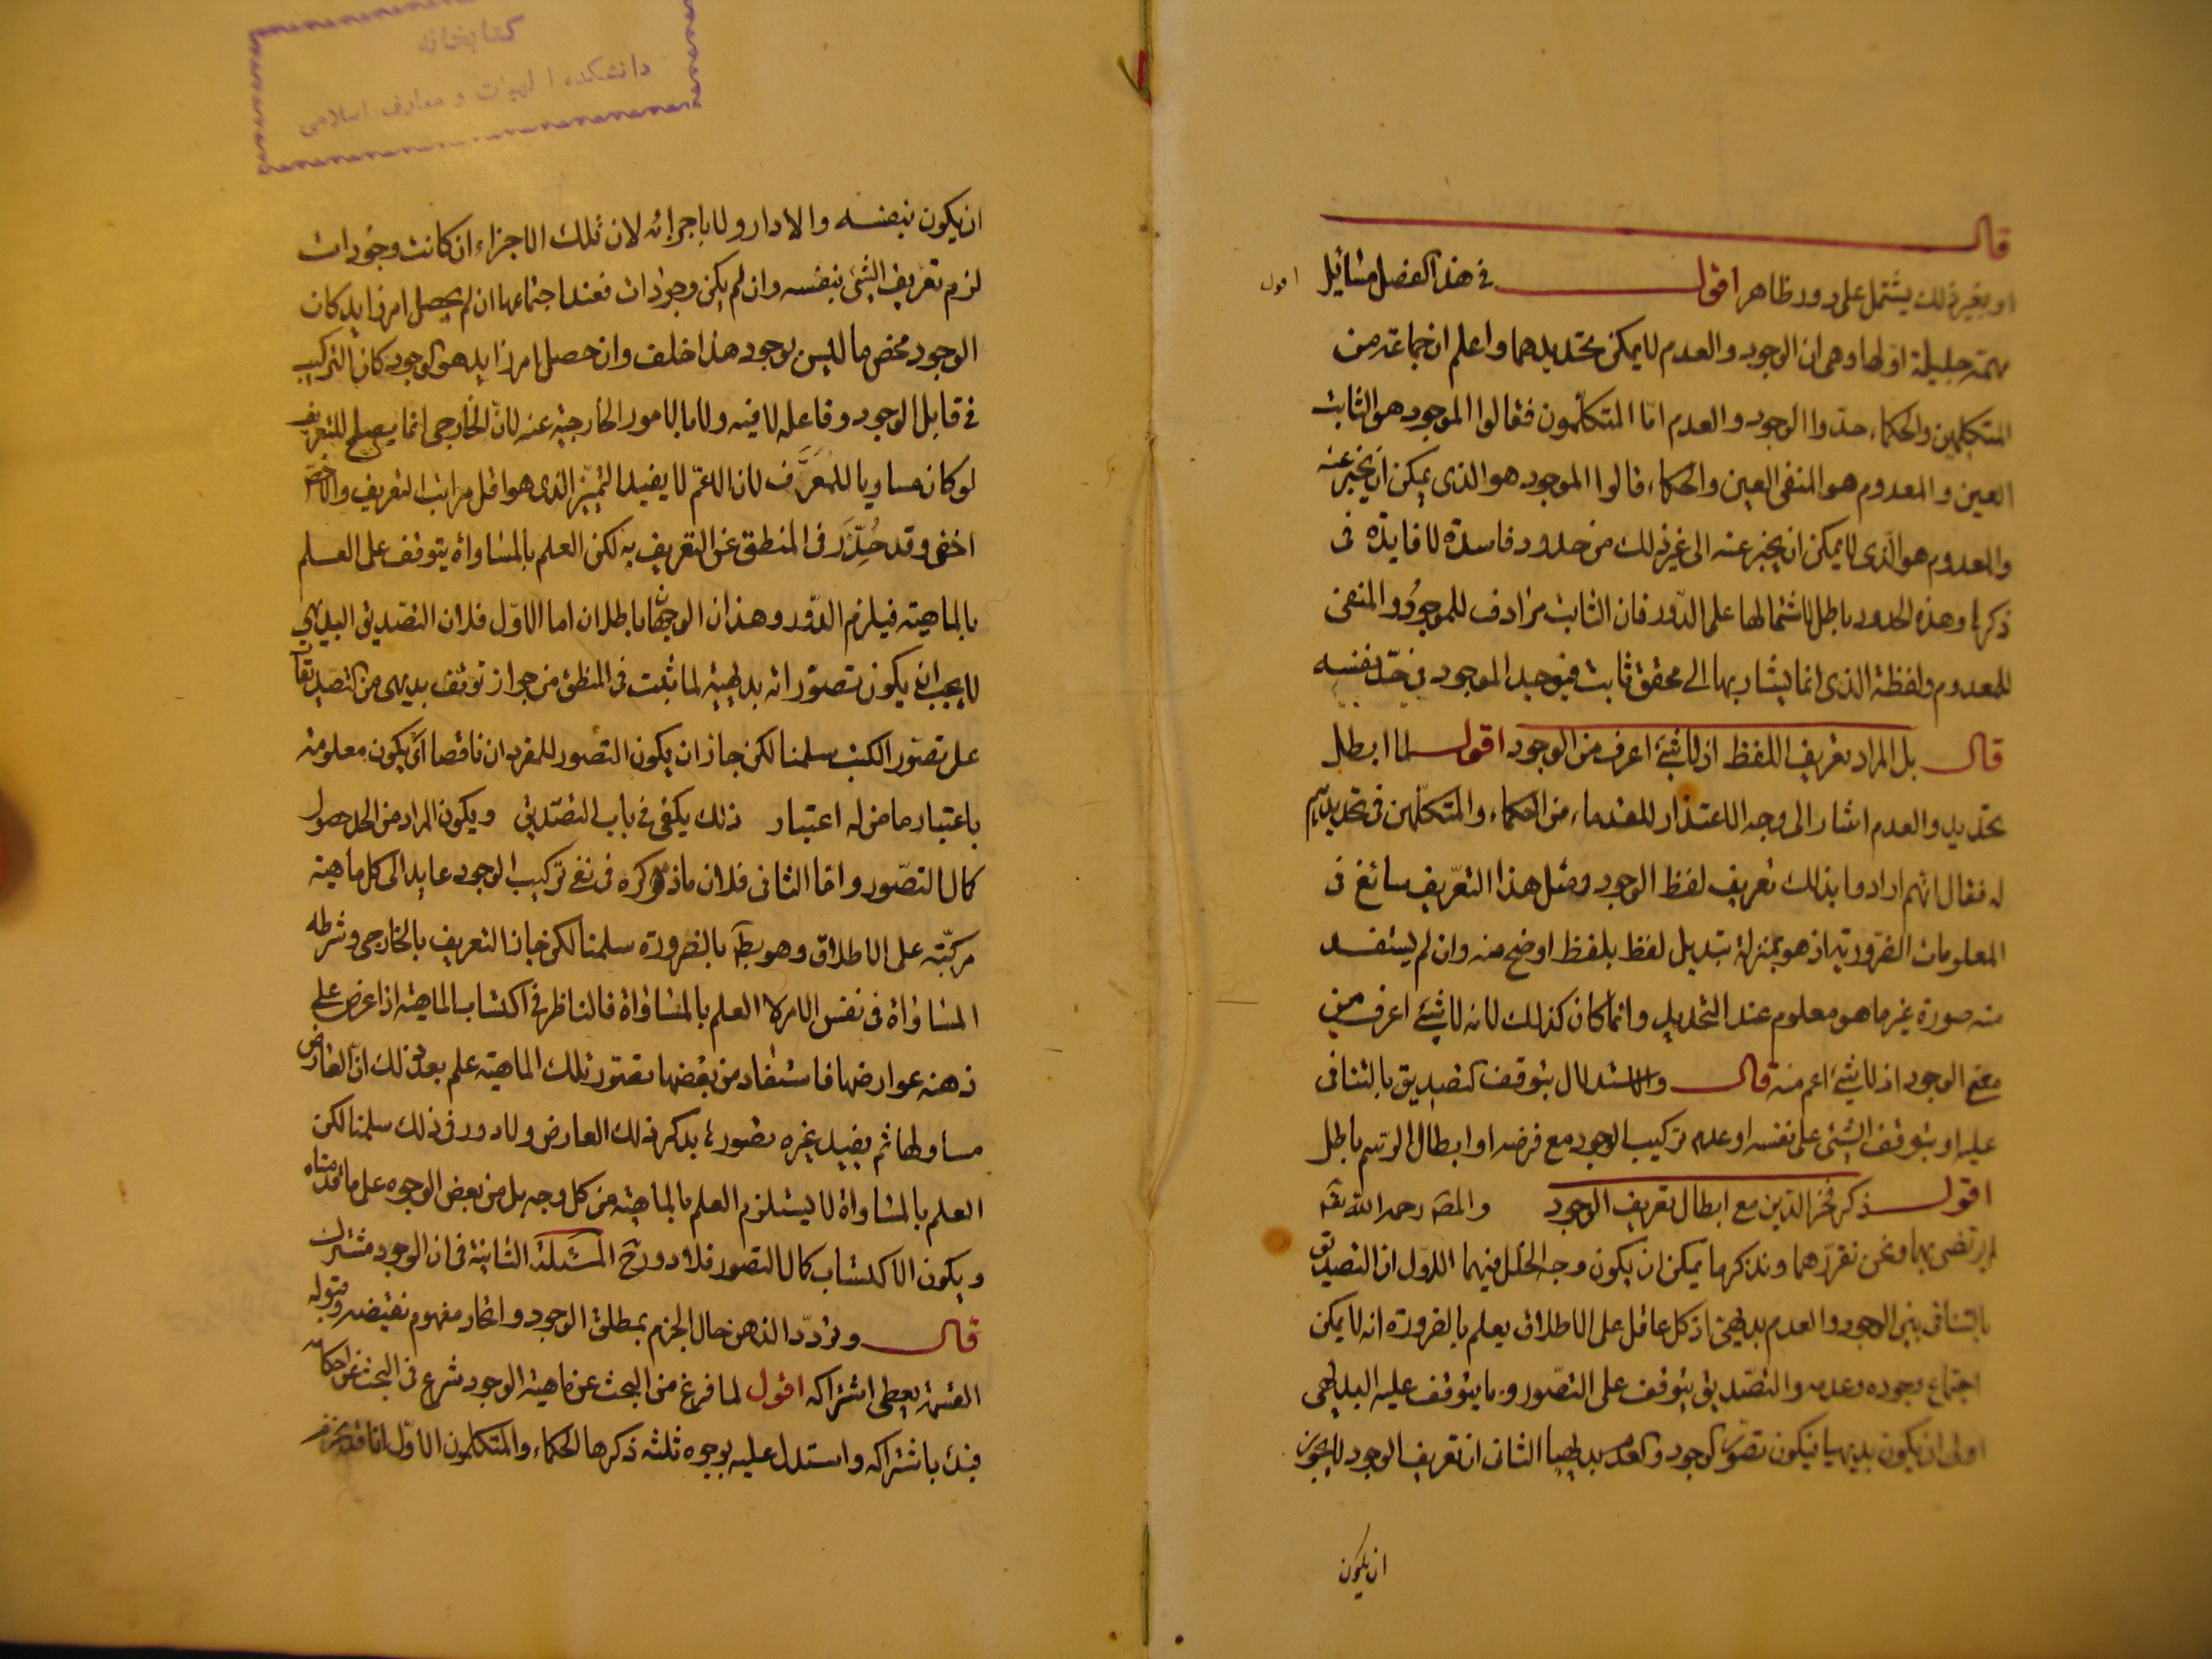 قال
او بغير ذلك يشتمل على دور ظاهر اقول في هذا الفصل مسائل
مهمة جليلة اولها وهى ان الوجود والعدم لا يمكن تحديدهما واعلم ان جماعة من
المتكلمين والحكماء حدّوا الوجود والعدم امّا المتكلمون فقالوا الموجود هو الثابت
العين والمعدوم هو المنفى العين والحكماء قالوا الموجود هو الذى يمكن ان يخبر عنه
والمعدوم هو الذى لا يمكن ان يخبر عنه الى غير ذلك من حدود فاسدة لا فايدة فى
ذكرها وهذه الحدود باطل لاشتمالها على الدّور فان الثابت مرادف للموجود والمنفى
للمعدوم ولفظة الذى انما يشار بها الى محقق ثابت فيوجد الموجود فى حدّ نفسه
قال بل المراد تعريف اللفظ اذ لا شئ اعرف من الوجود اقول لما ابطل
تحديد والعدم اشار الى وجه الاعتذار للقدماء من الحكماء والمتكلّمين فى تحديدهم
له فقال انهم ارادوا بذلك تعريف لفظ الوجود ومثل هذا التعّريف سائغ فى
المعلومات الضّرورية اذ هو بمنزلة تبديل لفظ بلفظ اوضح منه وان لم يستفد
منه صورة غير ما هو معلوم عند التحديد وانما كان كذلك لانه لا شئ اعرف من
معنى الوجود اذ لا شئ اعم منه قال والاستدلال بتوقف التصديق بالتنافى
عليه او بتوقف الشئى على نفسه او عدم تركيب الوجود مع فرضه او ابطال الرّسم باطل
اقول ذكر فخر الدّين مع ابطال تعريف الوجود والمصَ رحمه الله
لم يرتض بهما ونحن نقرّرهما ونذكرها يمكن ان يكون وجه الخلل فيهما الاوّل ان التصديق
بالتنافى بين الوجود والعدم بديهى اذ كل عاقل على الاطلاق يعلم بالضرورة انه لا يمكن
اجتماع وجوده وعدمه والتصّديق يتوقف على التصّور وما يتوقف عليه البديهى
اولى ان يكون بديهيا فيكون تصوّر الوجود والعدم بديهيا الثانى ان تعريف الوجود لا يجوز
ان يكون
كتابخانه
دانشكده الهيات و معارف اسلامى
ان يكون بنفسه والا دار ولا باجزائه لان تلك الاجزاء ان كانت وجودات
لزم تعريف الشئ بنفسه وان لم يكن وجودات فعند اجتماعها ان لم يحصل امر زايد كان
الوجود محض ما ليس بوجود هذا خلف وان حصل امر زايد هو الوجود كان التركيب
فى قابل الوجود وفاعله لا فيه ولا بالامور الخارجية عنه لانّ الخارجى انما يصلح للتعريف
لو كان مساويا للمُعَرَّف لان الاعمّ لا يفيد التميّز الذى هو اقل مراتب التعريف والاخصّ
اخفى وقد حُذِّرَ فى المنطق عن التعريف به لكن العلم بالمساواة يتوقف على العلم
بالماهية فيلزم الدّور وهذان الوجهان باطلان اما الاوّل فلان التصّديق البديهى
لا يجب ان يكون تصوّراته بديهية لما ثبت فى المنطق من جواز توقف بديهى من التصديقات
على تصوّر الكسب سلمنا لكن جاز ان يكون التصور للمفردان ناقصا اى يكون معلومة
باعتبار ما من له اعتبار ذلك يكفى فى باب التصّديق ويكون المراد من الحد حصول
كمال التصّور واما الثانى فلان ما ذكره فى نفى تركيب الوجود عايد الى كل ماهية
مركبّة على الاطلاق وهو بطَ بالضرورة سلمنا لكن جاز التعريف بالخارجى وشرطه
المساواة فى نفس الامر لا العلم بالمساواة فالناظر فى اكتساب الماهية اذا عرض على
ذهنه عوارضها فاستفاد من بعضها تصّور تلك الماهية علم بعد ذلك انّ العارض
مساو لها ثم يفيد غيره تصورها بذكر ذلك العارض ولا دور فى ذلك سلمنا لكن
العلم بالمساواة لا يستلزم العلم بالماهية من كل وجه بل من بعض الوجوه على ما قدمناه
ويكون الاكتساب كمال التصور فلا دورحَ المسئلة الثانية فى ان الوجود مشترك
قال وتردّد الذهن حال الجزم بمطلق الوجود واتحاد مفهوم نقيضه وقبوله
القسمة يعطى اشتراكه اقول لما فرغ من البحث عن ماهية الوجود شرع فى البحث عن احكامه
فبدء باشتراكه واستدل عليه بوجوه ثلثة ذكرها الحكماء والمتكلمون الاوّل انا قد نجزم